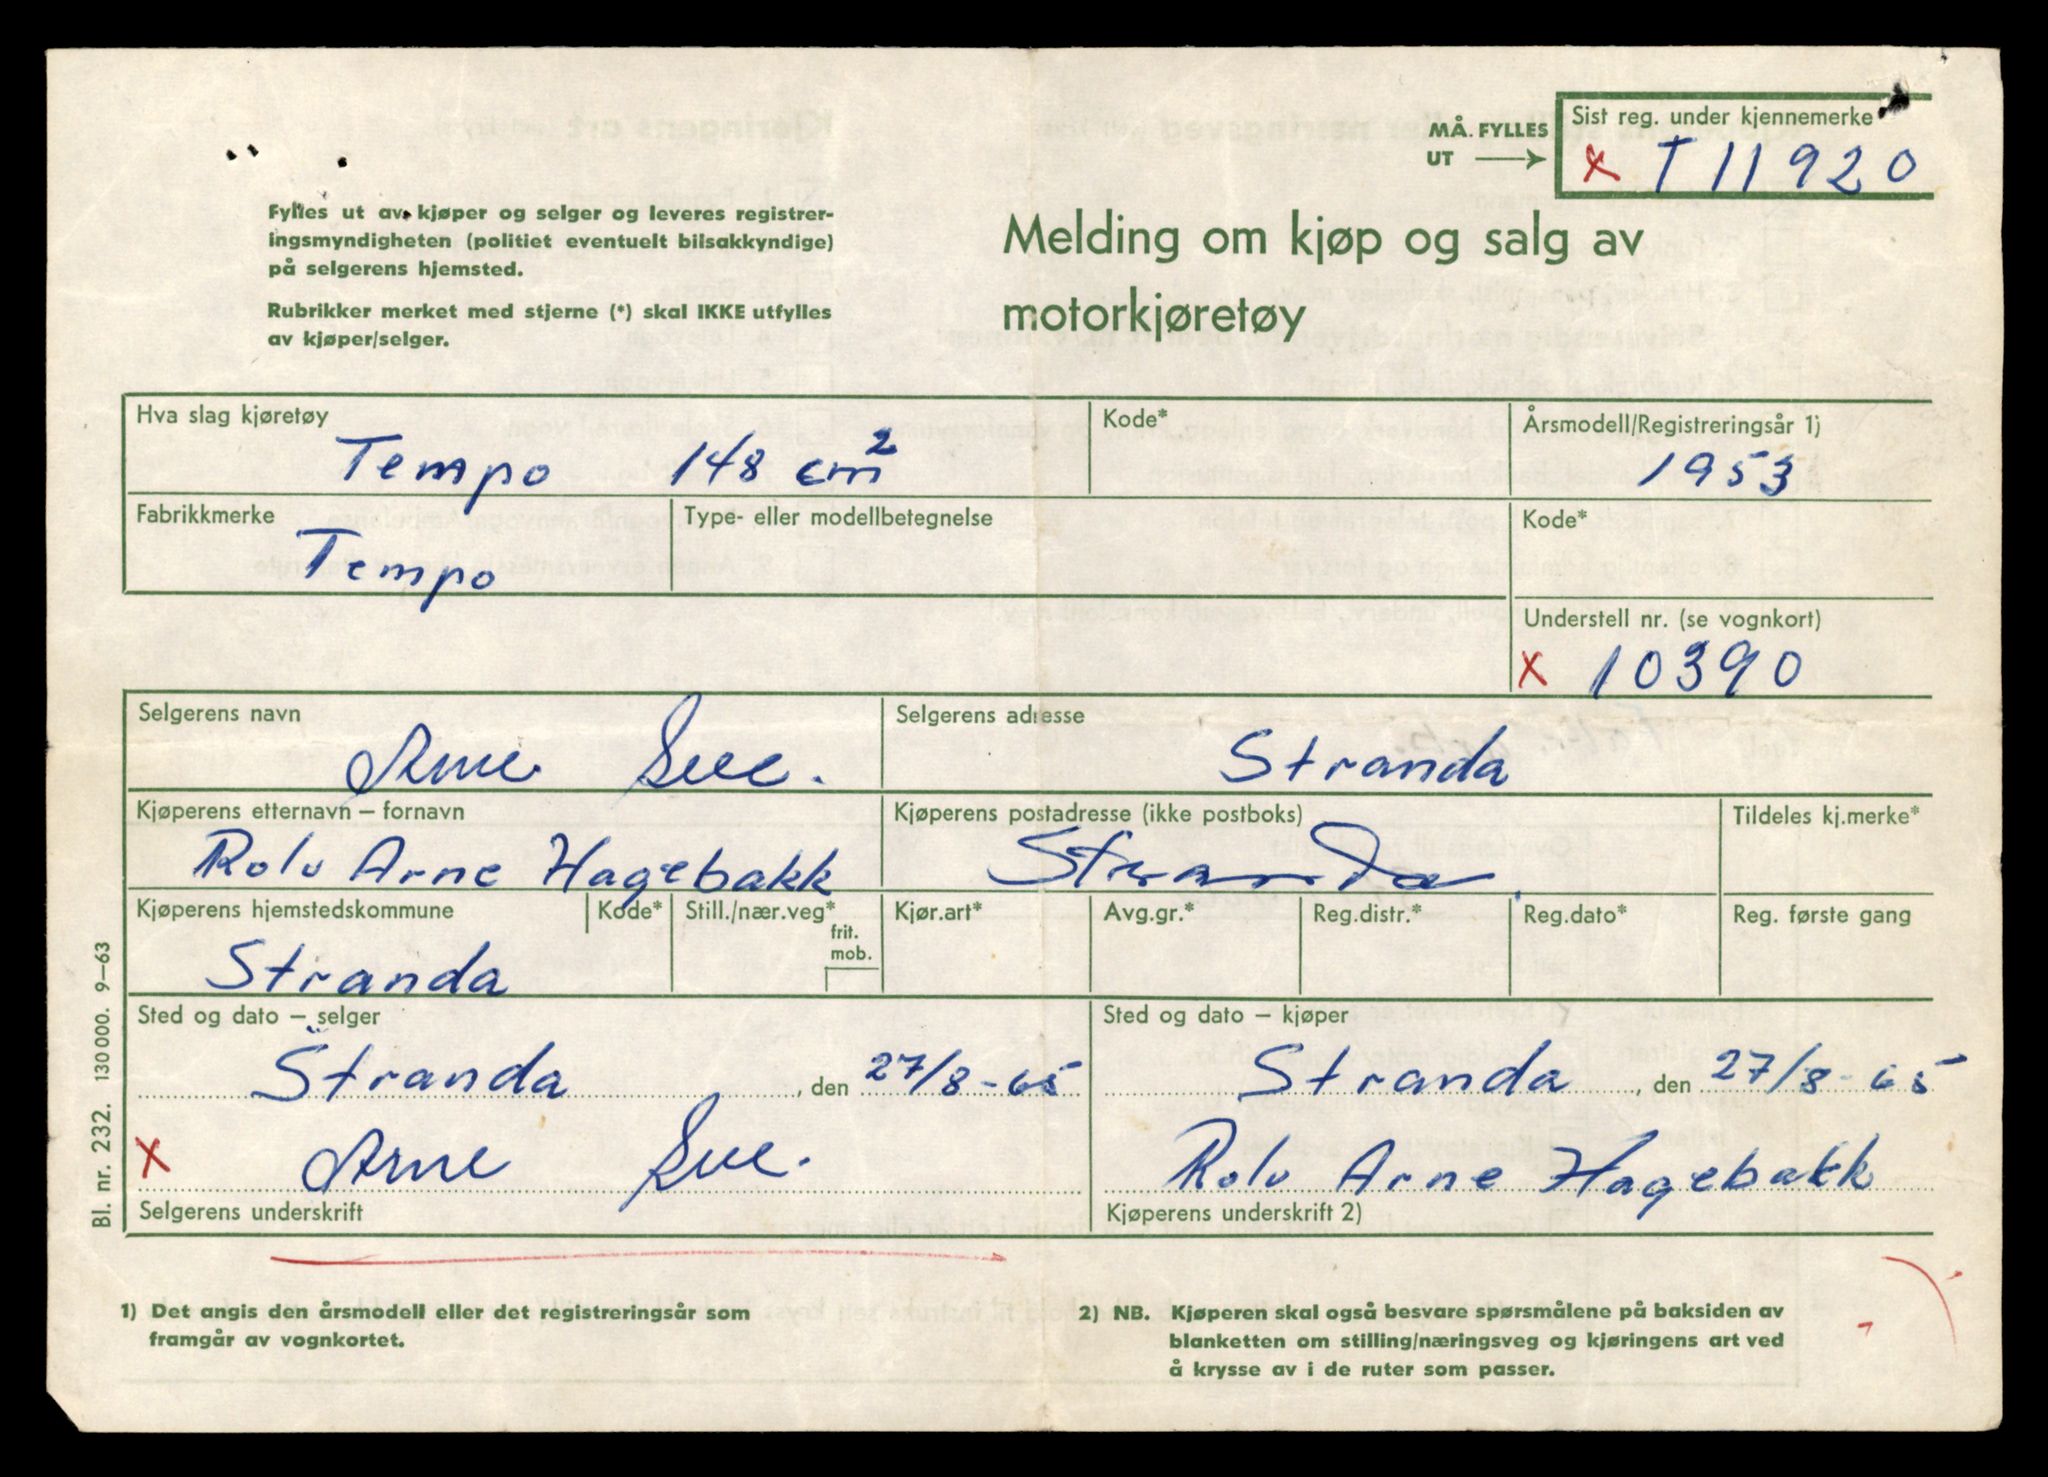 MÅ. FYLLES UT
Sist reg. under kjennemerke
x T 11920
Fylles ut av kjøper og selger og leveres registrer-
ingsmyndigheten (politiet eventuelt bilsakkyndige)
på selgerens hjemsted.
Rubrikker merket med stjerne (*) skal IKKE utfylles
av kjøper/selger.
Melding om kjøp og salg av
motorkjøretøy
Hva slag kjøretøy
Tempo 148 cm²
Kode*
Årsmodell/Registreringsår 1)
1953
Fabrikkmerke
Tempo
Type- eller modellbetegnelse
Kode*
Understell nr. (se vognkort)
x 10390
Selgerens navn
Arne
Selgerens adresse
Stranda
Kjøperens etternavn – fornavn
Rolv Arne Hagebakk
Kjøperens postadresse (ikke postboks)
Stranda
Tildeles kj.merke*
Kjøperens hjemstedskommune
Stranda
Kode*
Still./nær.veg*
frit.
mob.
Kjør.art*
Avg.gr.*
Reg.distr.*
Reg.dato*
Reg. første gang
Sted og dato – selger
Stranda, den 27/8-65
x Arne
Selgerens underskrift
Sted og dato – kjøper
Stranda, den 27/8-65
Rolv Arne Hagebakk
Kjøperens underskrift 2)
Bl. nr. 232. 130 000. 9–63
1) Det angis den årsmodell eller det registreringsår som
framgår av vognkortet.
2) NB. Kjøperen skal også besvare spørsmålene på baksiden av
blanketten om stilling/næringsveg og kjøringens art ved
å krysse av i de ruter som passer.